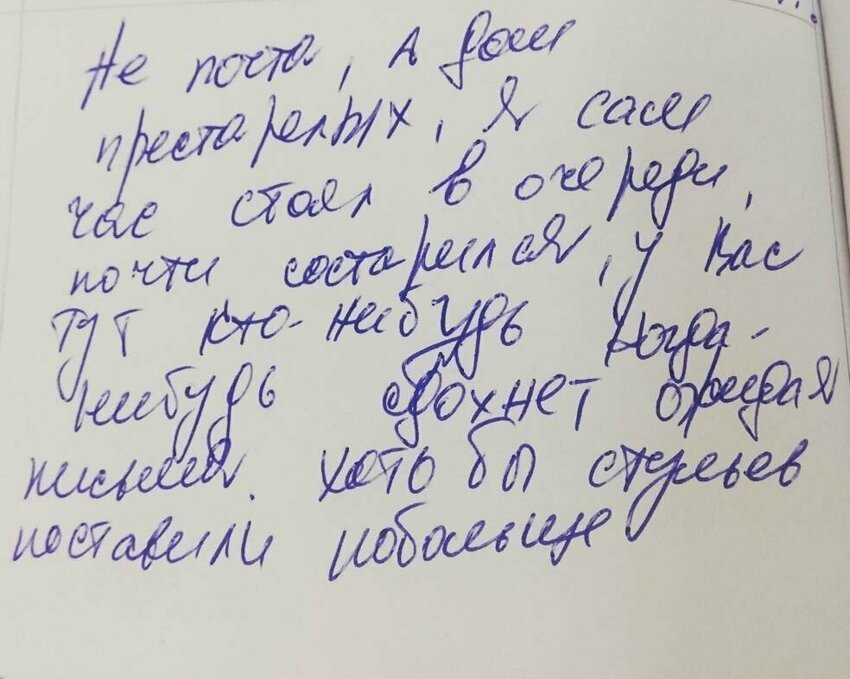 Не почта, а дом
престарелых, я сам
час стоял в очереди,
почти состарился, у вас
тут кто-нибудь когда-
нибудь сдохнет ожидая
письма. хотя бы стульев
поставили побольше